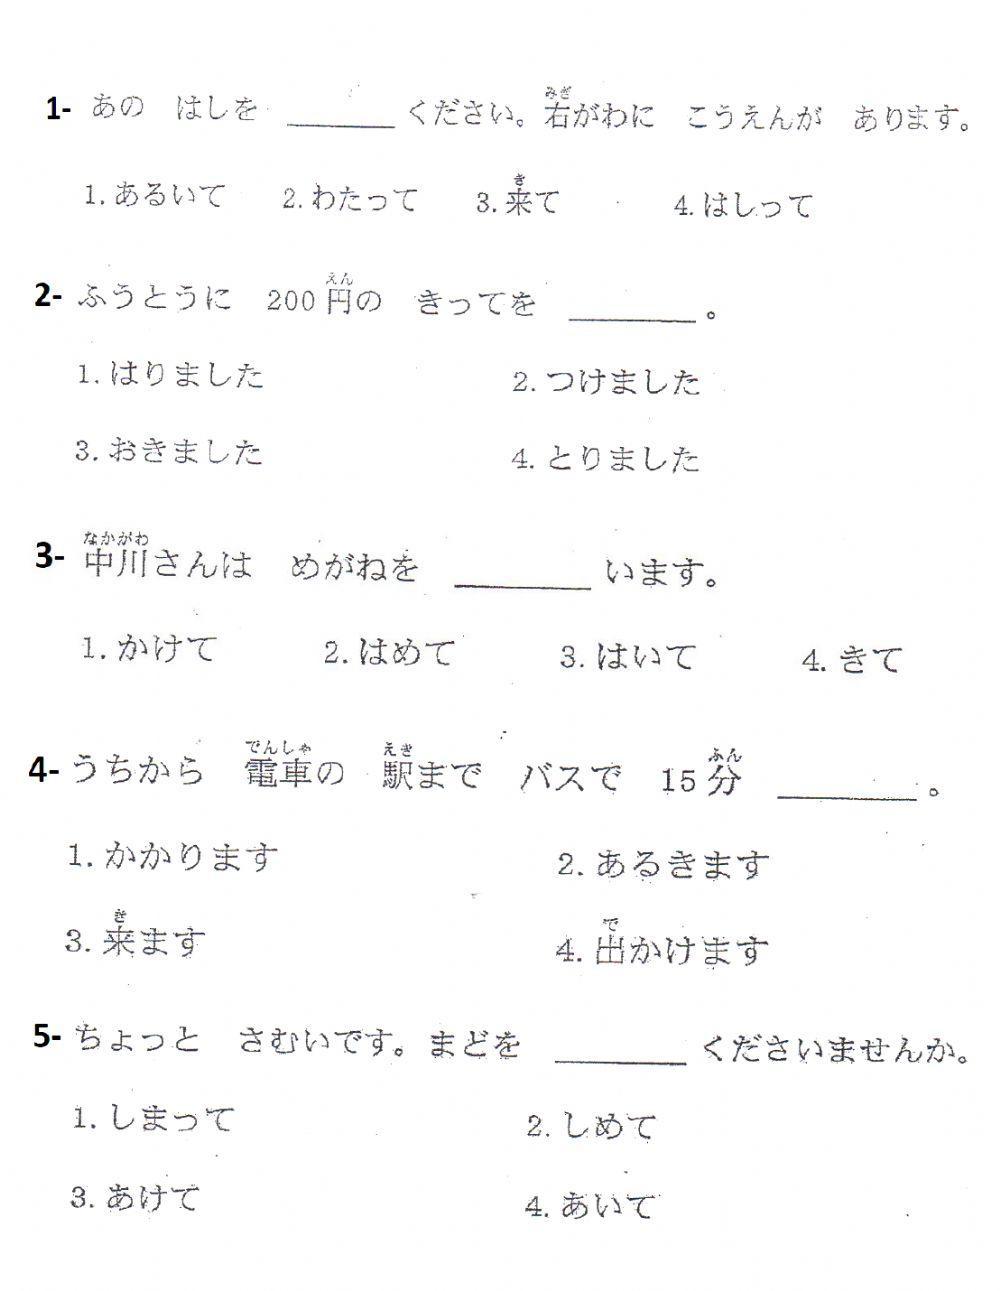 1- あの はしを ＿＿＿＿ ください。右がわに こうえんが あります。
みぎ
1. あるいて 2. わたって 3. 来て 4. はしって
き
2- ふうとうに 200円の きってを ＿＿＿＿。
えん
1. はりました 2. つけました
3. おきました 4. とりました
3- 中川さんは めがねを ＿＿＿＿ います。
なかがわ
1. かけて 2. はめて 3. はいて 4. きて
4- うちから 電車の 駅まで バスで 15分 ＿＿＿＿。
でんしゃ えき ふん
1. かかります 2. あるきます
3. 来ます 4. 出かけます
き で
5- ちょっと さむいです。まどを ＿＿＿＿ くださいませんか。
1. しまって 2. しめて
3. あけて 4. あいて